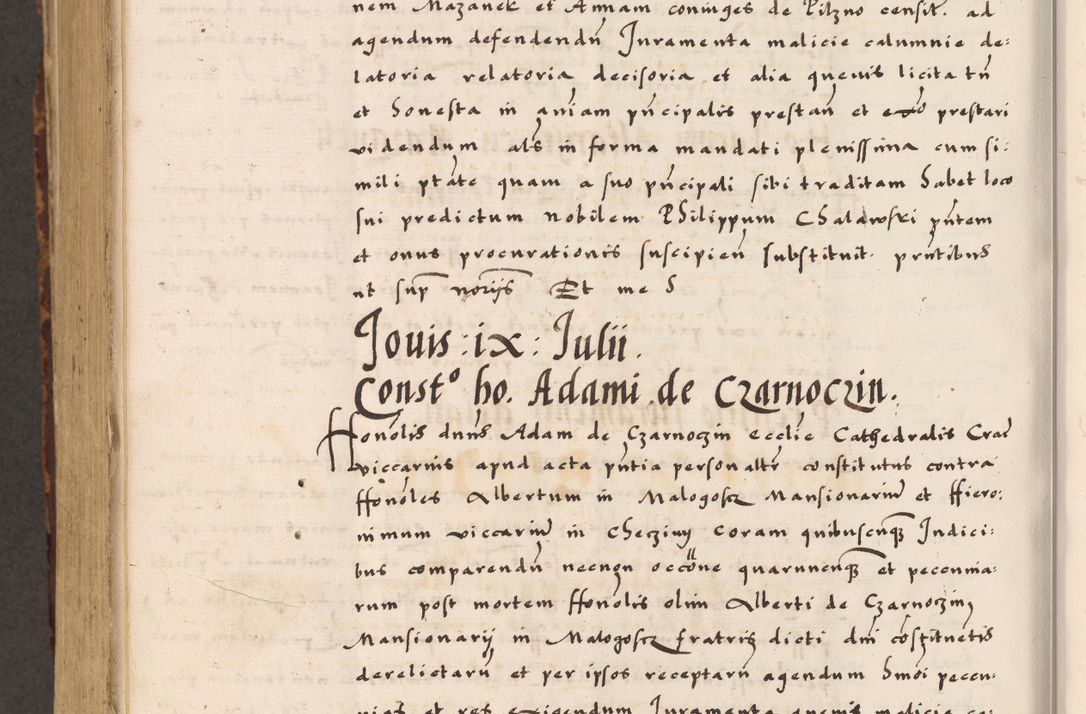 nem Mazanek et Annam coniuges de Pilzno censit. ad
agendum defendendū Juramenta malicie calumnie de:
latoria relatoria decisoria et alia quevis licita tñ
et honesta in aniam pñcipalis prestañ et prestari
videndum als in forma mandati plenissima cum si:
mili ptate quam a suo pñcipali sibi traditam habet loco
sui predictum nobilem Philippum Chalawski pñtem
et onus procurationis suscipieñ substituit. pñtibus
ut sup noriis Et me S
Jouis : ix : Julii.
Const° ho. Adami de Czarnoczin.
Honolis dnus Adam de Czarnoczin ecclie Cathedralis Crac
viccarius apud acta pñtia personaltr constitutus contra
ffonoles Albertum in Malogoscz Mansionariū et ffiero:
nimum viccariū in Checziny coram quibuscunqz Judici:
bus comparendū necnon occöne quarumcunqz et peccunia:
rum post mortem ffonolis olim Alberti de Czarnoczin
Mansionarij in Malogoscz fratris dicti dni costituetis
derelictarū et per ipsos receptarū agendum Smoi peccu:
nias et res exigendum Juramenta quevis malicie ca: